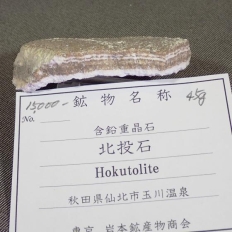 15000- 鉱物名称 45g
No.
含鉛重晶石
北投石
Hokutolite
秋田県仙北市玉川温泉
東京 岩本鉱産物商会